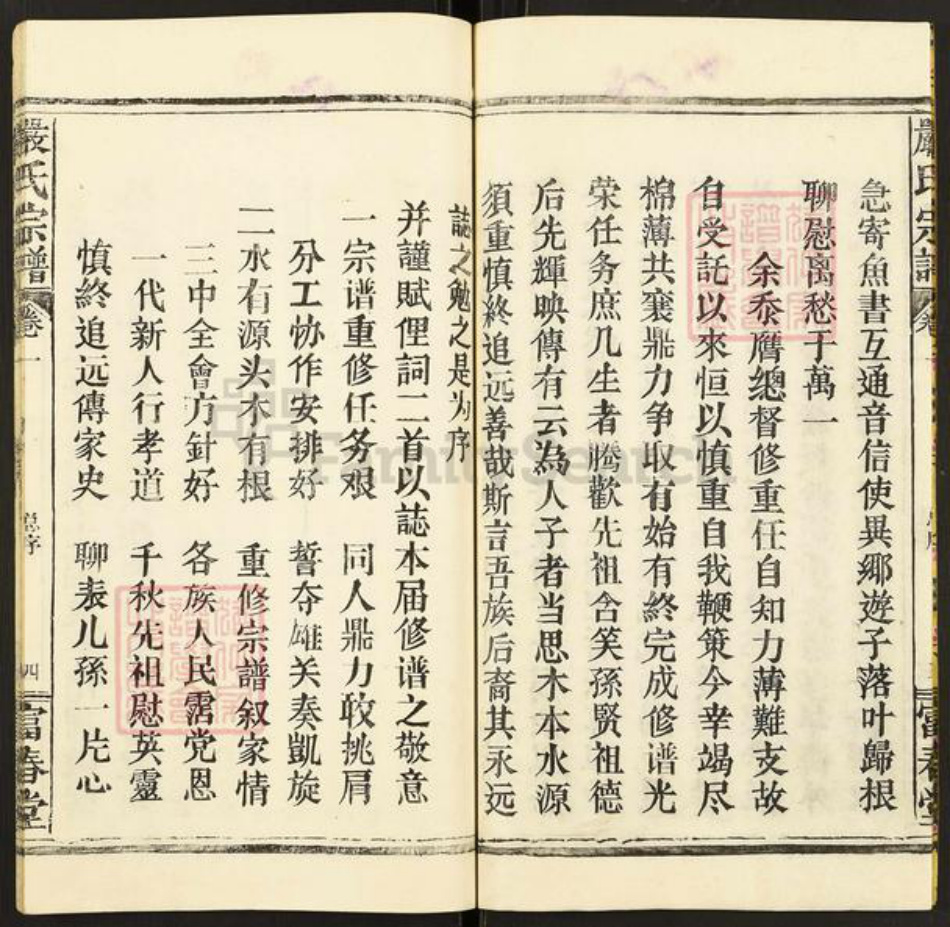 嚴氏宗譜
卷一
富春堂
急寄魚書互通音信使異鄉遊子落叶歸根
聊慰离愁于萬一
余忝膺總督修重任自知力薄難支故
自受託以來恒以慎重自我鞭策今幸竭尽
棉薄共襄鼎力争取有始有終完成修谱光
荣任务庶几生者腾歡先祖含笑孫賢祖德
后先輝映傳有云為人子者当思木本水源
須重慎終追远善哉斯言吾族后裔其永远
誌之勉之是为序
并謹賦俚詞二首以誌本届修谱之敬意
一宗谱重修任务艰 同人鼎力敢挑肩
分工协作安排好 誓夺雄关奏凱旋
二水有源头木有根 重修宗譜叙家情
三中全會方針好 各族人民霑党恩
一代新人行孝道 千秋先祖慰英靈
慎終追远傳家史 聊表儿孫一片心
嚴氏宗譜
卷一
总序
四
富春堂
FamilySearch